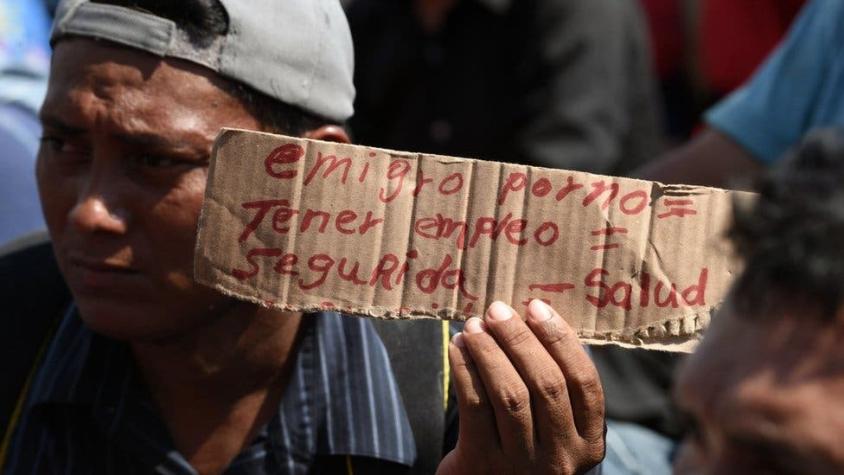 emigro porno =
Tener empleo =
seguRida = Salud